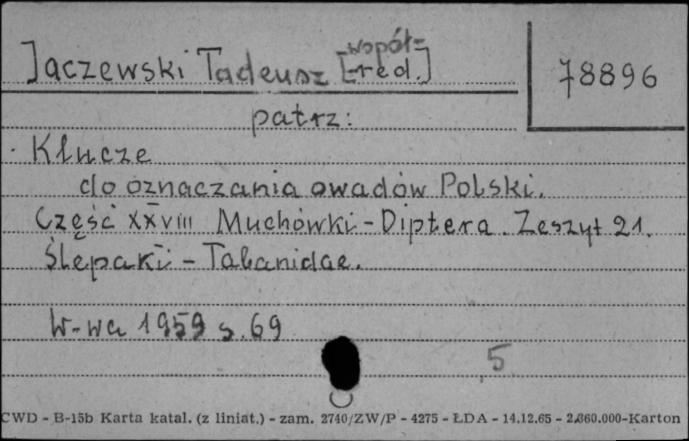 Jaczewski Tadeusz [współ=
red.]
78896
patrz:
Klucze
do oznaczania owadów Polski.
Część XXVIII Muchówki - Diptera. Zeszyt 21.
Ślepaki - Tabanidae.
W-wa 1959 s. 69
5
CWD - B-15b Karta katal. (z liniat.) - zam. 2740/ZW/P - 4275 - ŁDA - 14.12.65 - 2.360.000-Karton